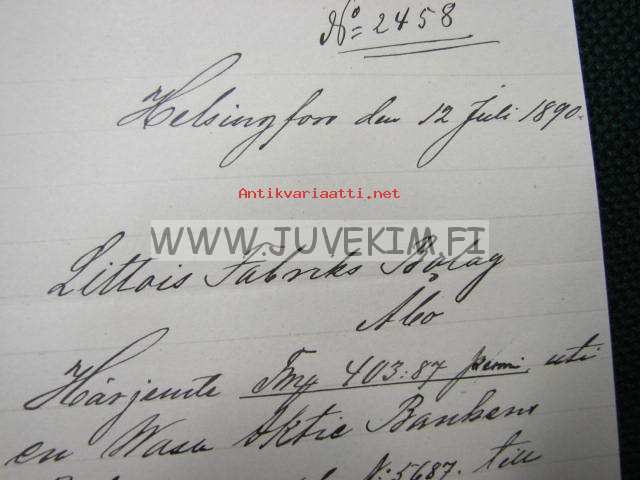 No 2458
Helsingfors den 12 Juli 1890.
Antikvariaatti.net
WWW.JUVEKIM.FI
Littois Fabriks Bolag
Åbo
Härjemte Fmf 403:87 penni, uti
en Wasa Aktie Bankens
N: 5687. till